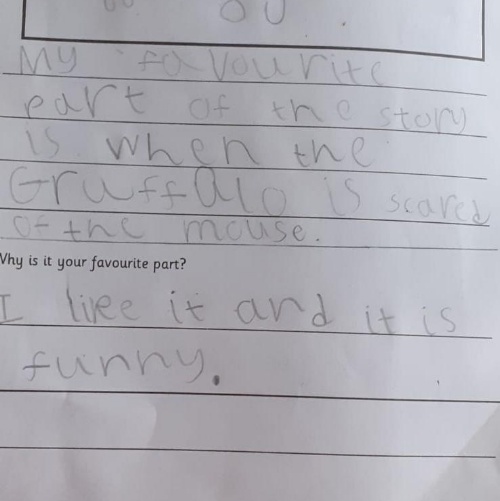 My favourite
part of the story
is when the
Gruffalo is scared
of the mouse.
Why is it your favourite part?
I like it and it is
funny.